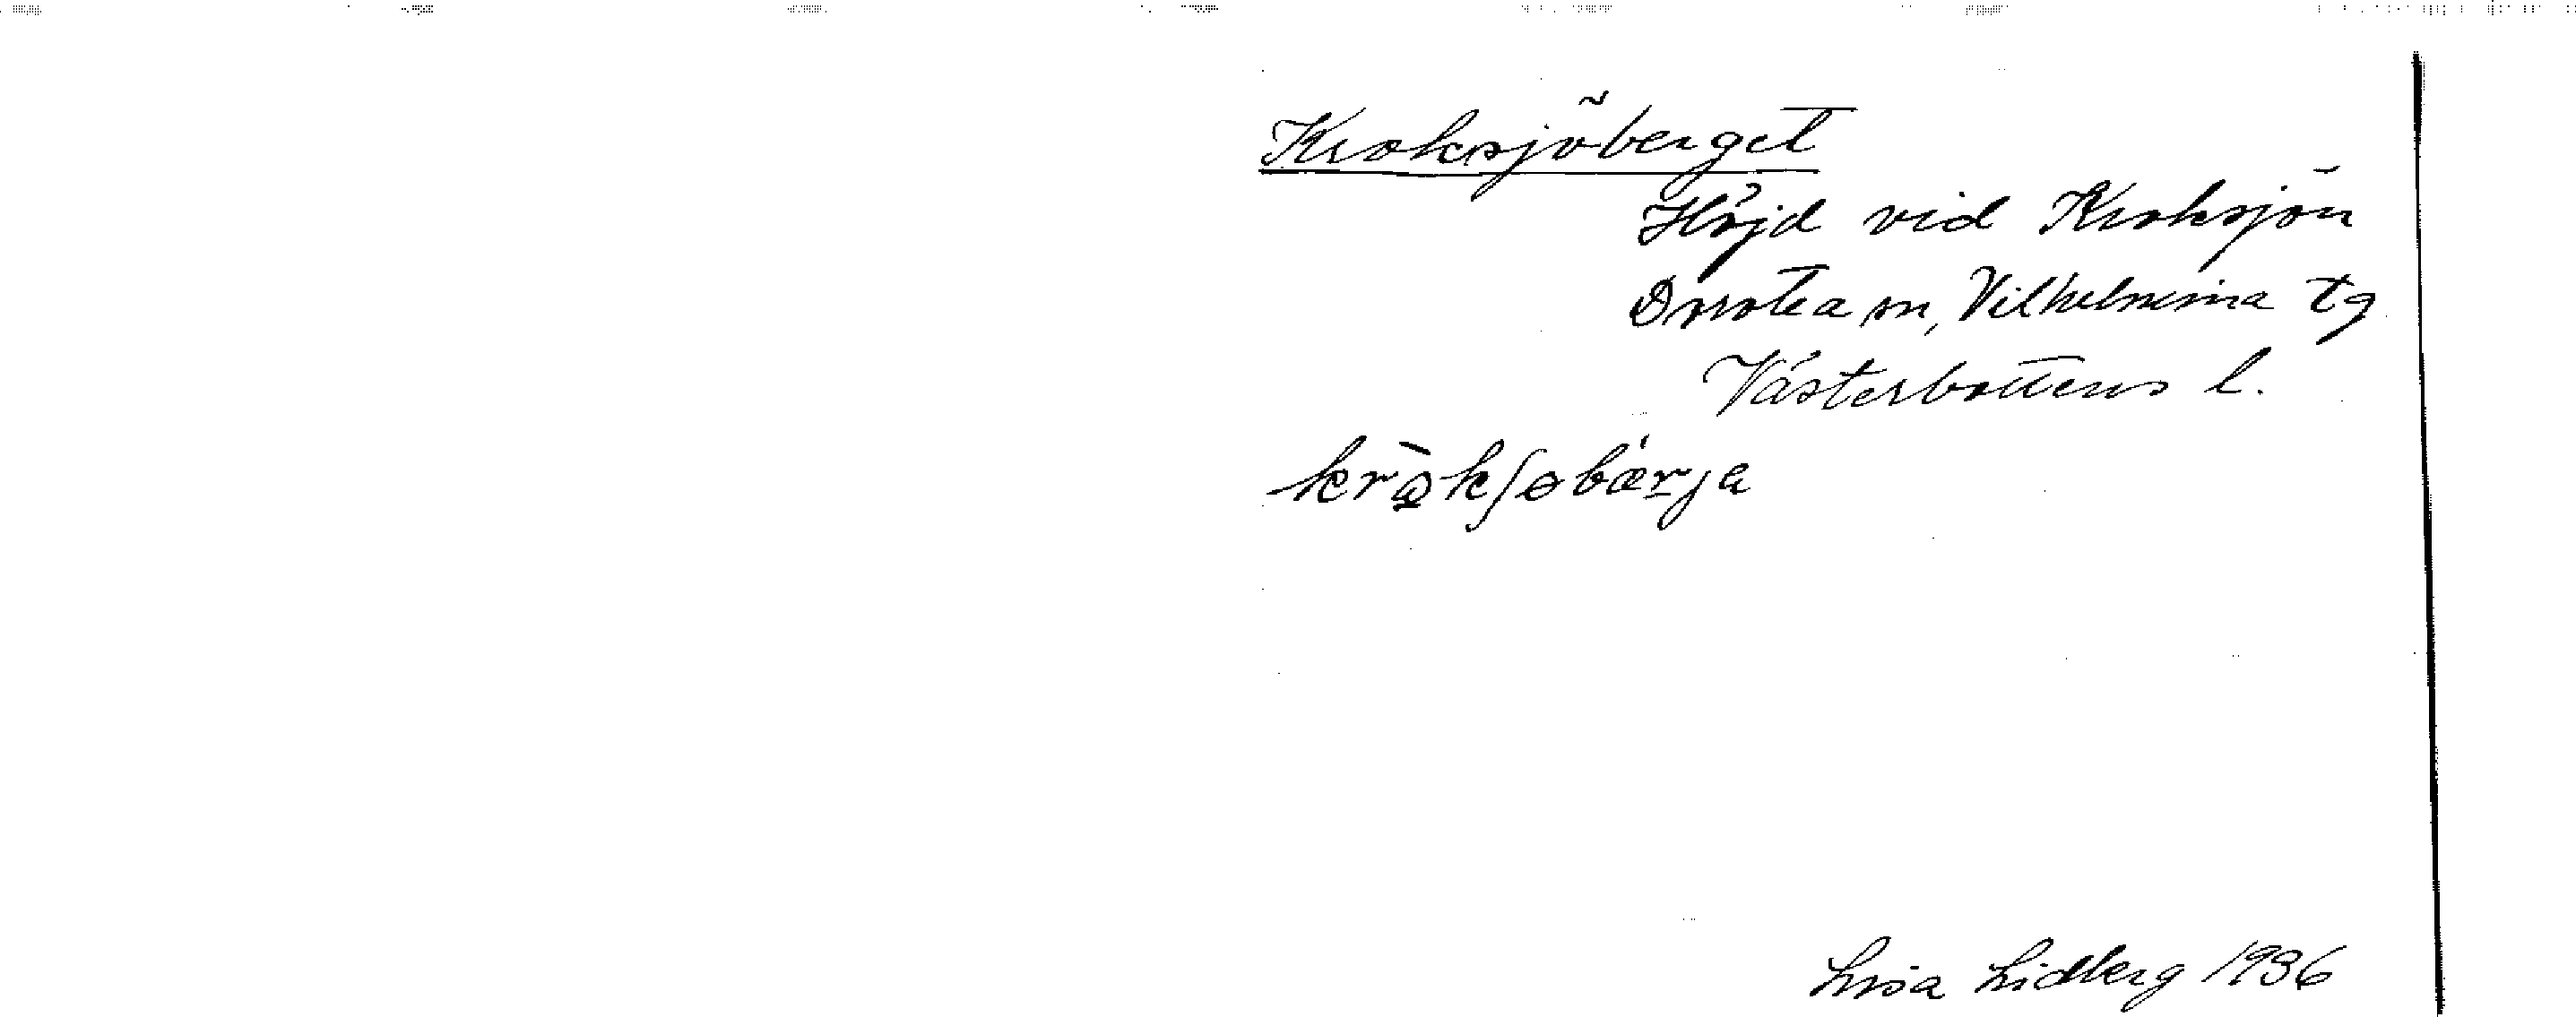 Kroksjöberget
Höjd vid Kroksjön
Dorotea sn, Vilhelmina tg
Västerbottens l.
Lisa Lidberg 1936